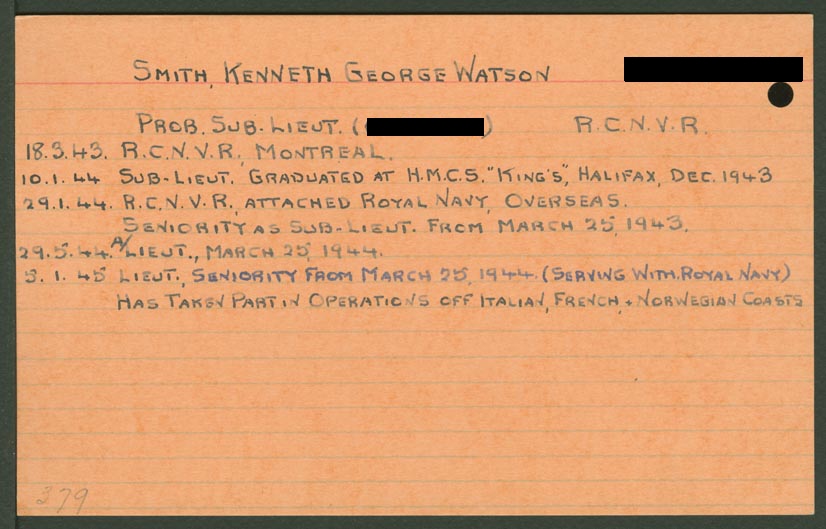 SMITH, KENNETH GEORGE WATSON
PROB. SUB-LIEUT. ( ) R.C.N.V.R.
18.3.43. R.C.N.V.R., MONTREAL.
10.1.44 SUB-LIEUT. GRADUATED AT H.M.C.S. "KING'S", HALIFAX, DEC. 1943
29.1.44. R.C.N.V.R., ATTACHED ROYAL NAVY, OVERSEAS.
SENIORITY AS SUB-LIEUT. FROM MARCH 25, 1943.
29.5.44. A/LIEUT., MARCH 25, 1944.
5.1.45 LIEUT., SENIORITY FROM MARCH 25, 1944. (SERVING WITH ROYAL NAVY)
HAS TAKEN PART IN OPERATIONS OFF ITALIAN, FRENCH, + NORWEGIAN COASTS
379